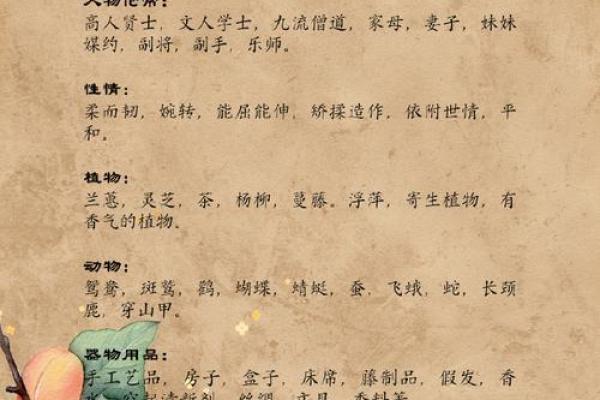 高人贤士，文人学士，九流僧道，家母，妻子，妹妹
媒约，副将，副手，乐师。
性情：
柔而韧，婉转，能屈能伸，矫揉造作，依附世情，平
和。
植物：
兰蕙，灵芝，茶，杨柳，蔓藤。浮萍，寄生植物，有
香气的植物。
动物：
鸳鸯，斑鹫，鹞，蝴蝶，蜻蜓，蚕，飞蛾，蛇，长颈
鹿，穿山甲。
器物用品：
手工艺品，房子，盒子，床席，藤制品，假发，香